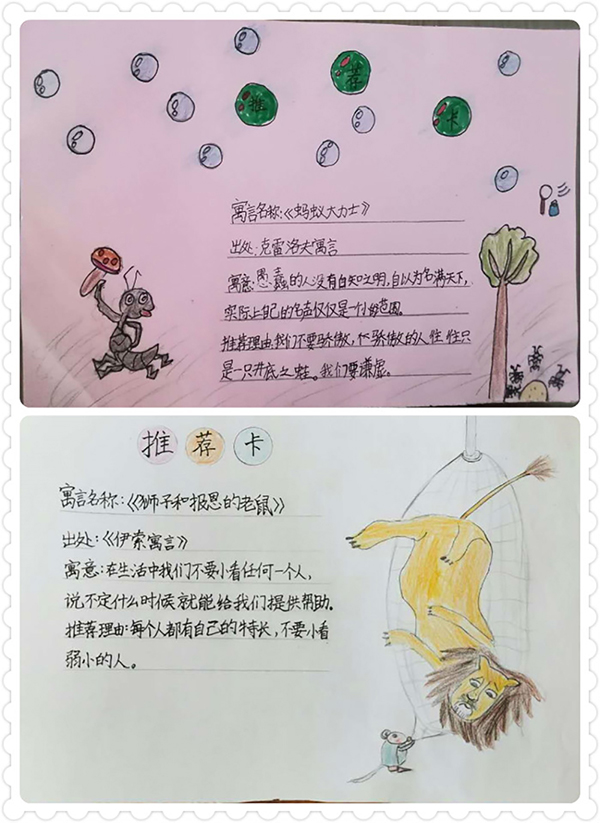 推荐卡
寓言名称:《蚂蚁大力士》
出处:克雷洛夫寓言
寓意:愚蠢的人没有自知之明,自以为名满天下,
实际上自己的名声仅仅是一个小范围。
推荐理由:我们不要骄傲,骄傲的人往往只
是一只井底之蛙。我们要谦虚。
推荐卡
寓言名称:《狮子和报恩的老鼠》
出处:《伊索寓言》
寓意:在生活中我们不要小看任何一个人,
说不定什么时候就能给我们提供帮助。
推荐理由:每个人都有自己的特长,不要小看
弱小的人。